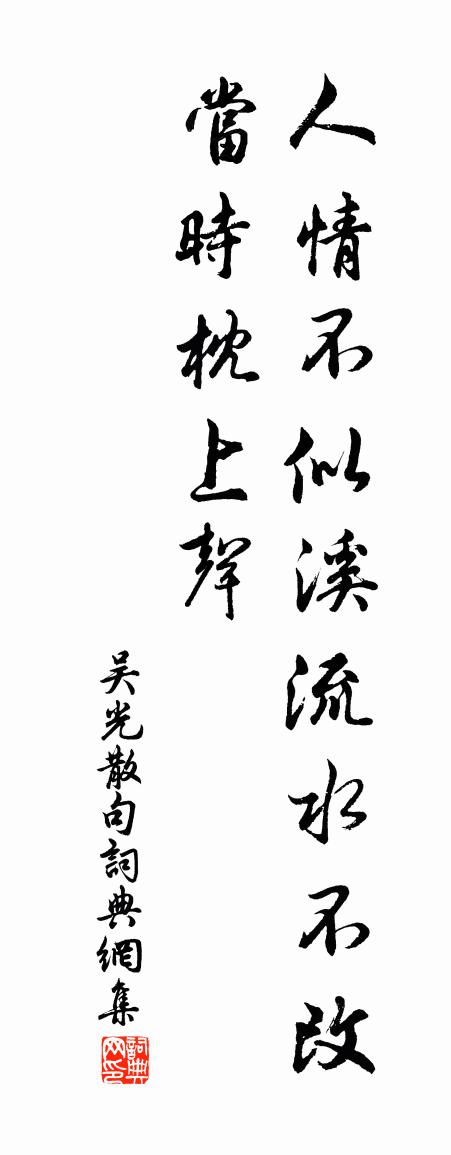 人情不似溪流水不改
當時枕上聲
吴光散句詞典網集
詞典网印